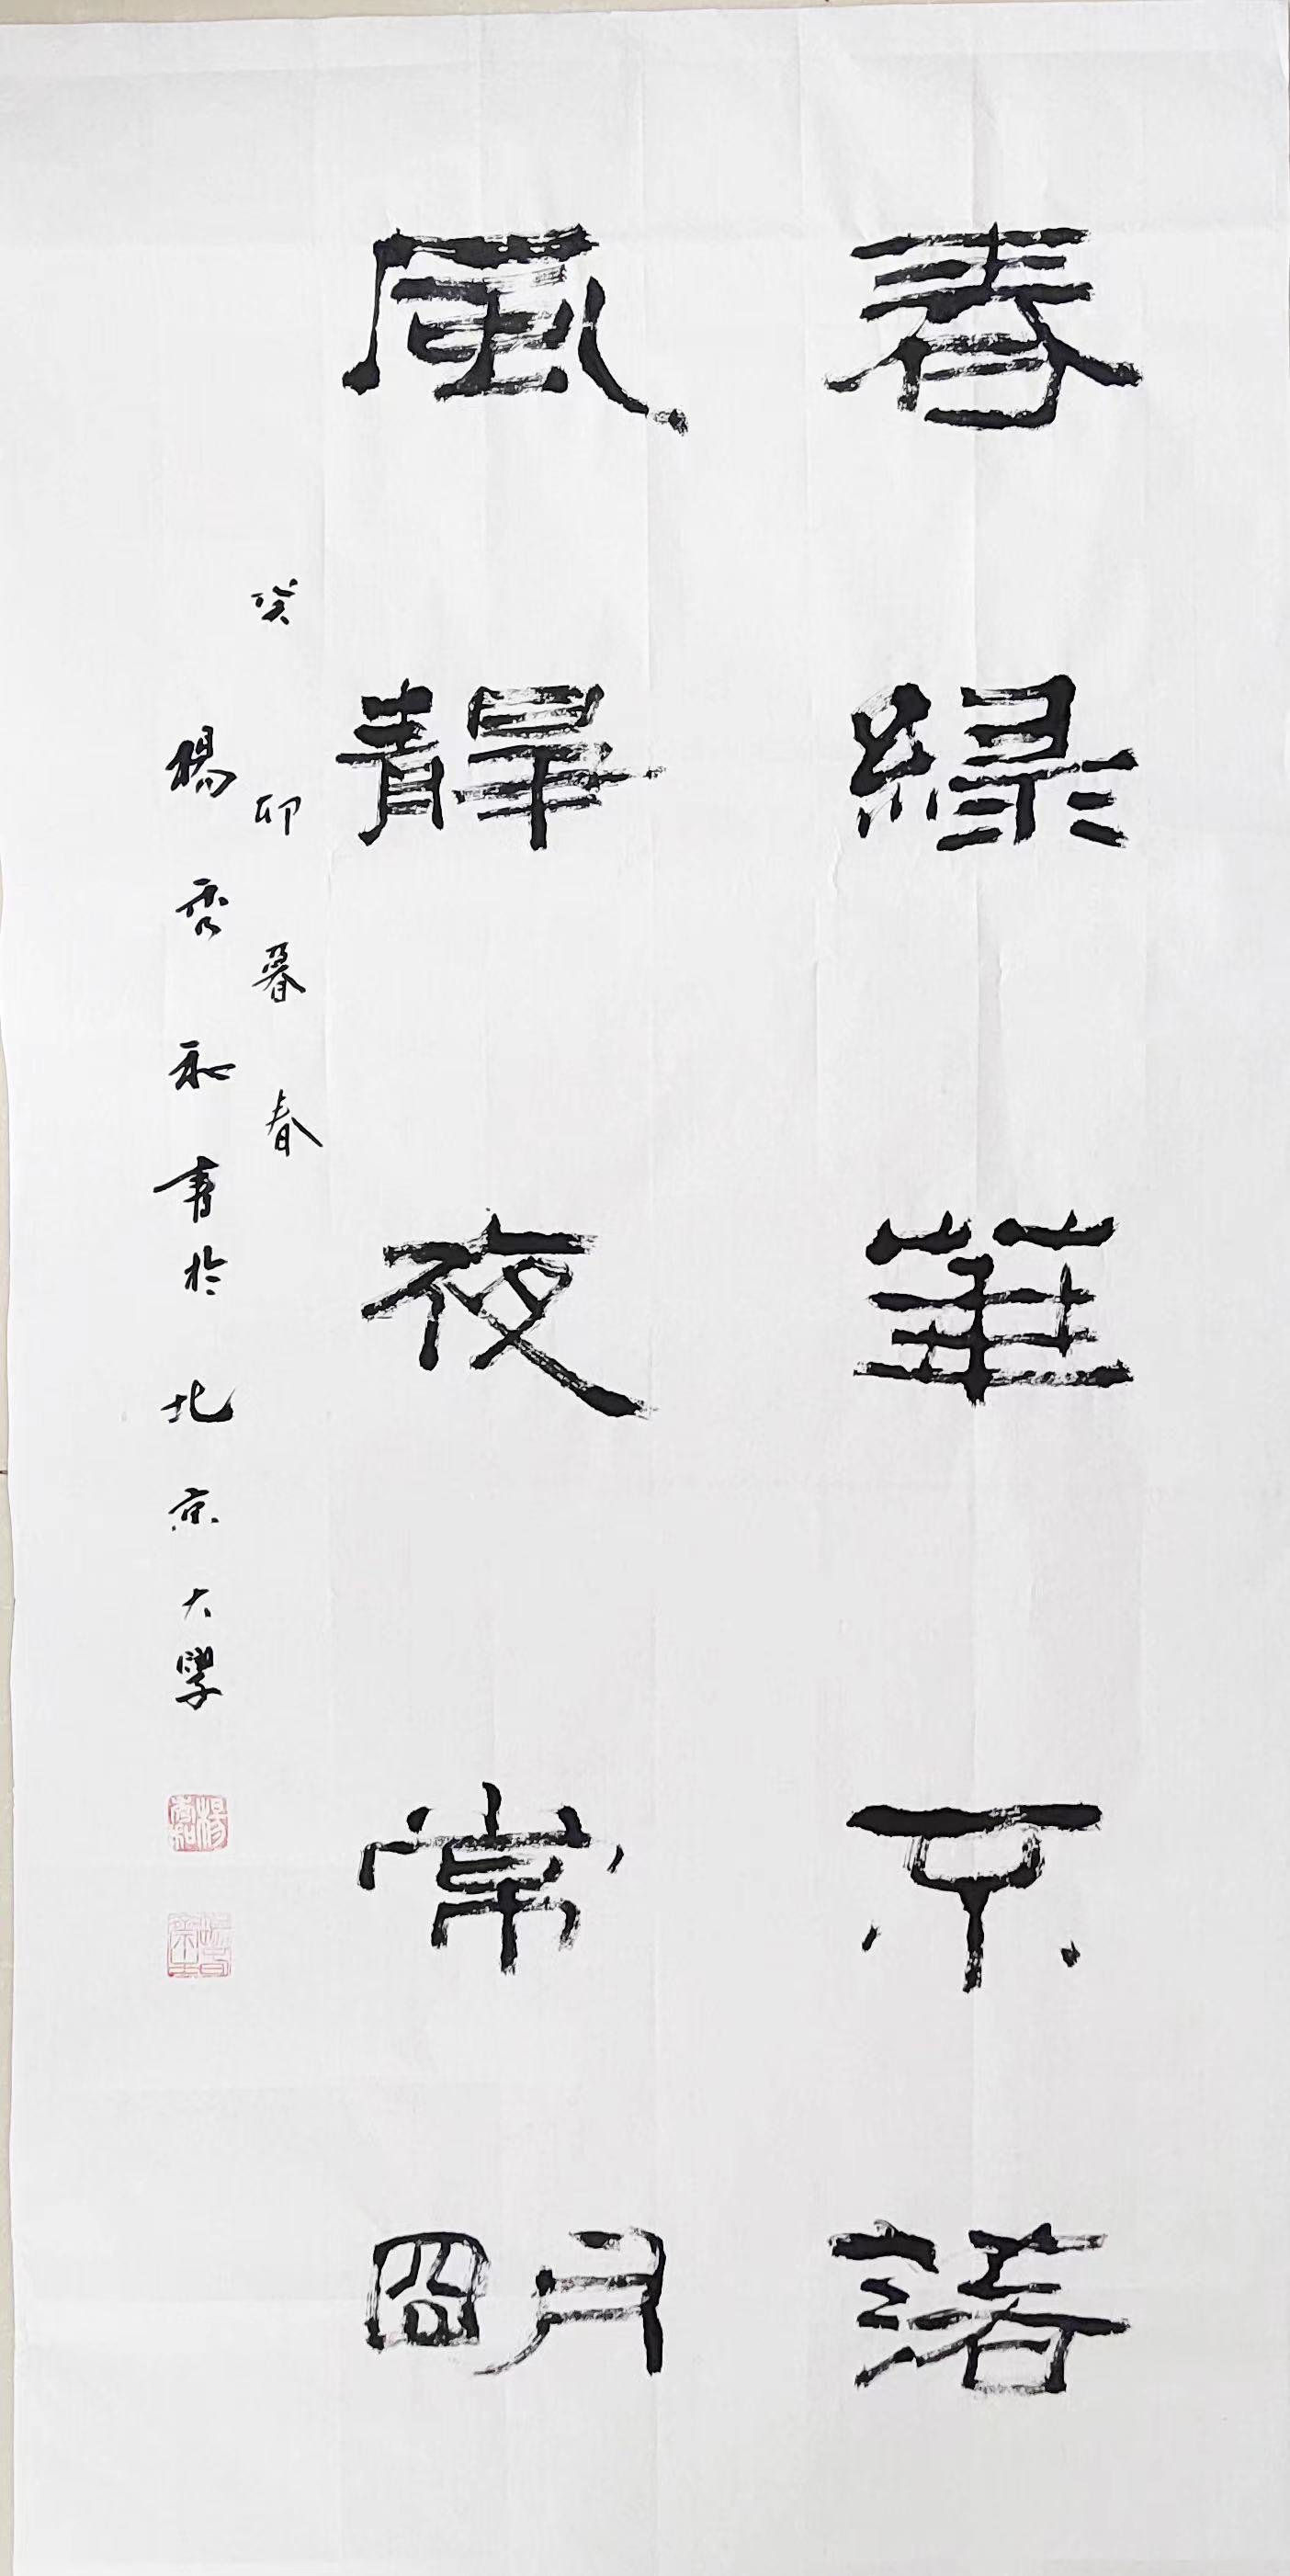 春綠華京
風靜夜常明
癸卯暮春
楊秀和書於北京大學